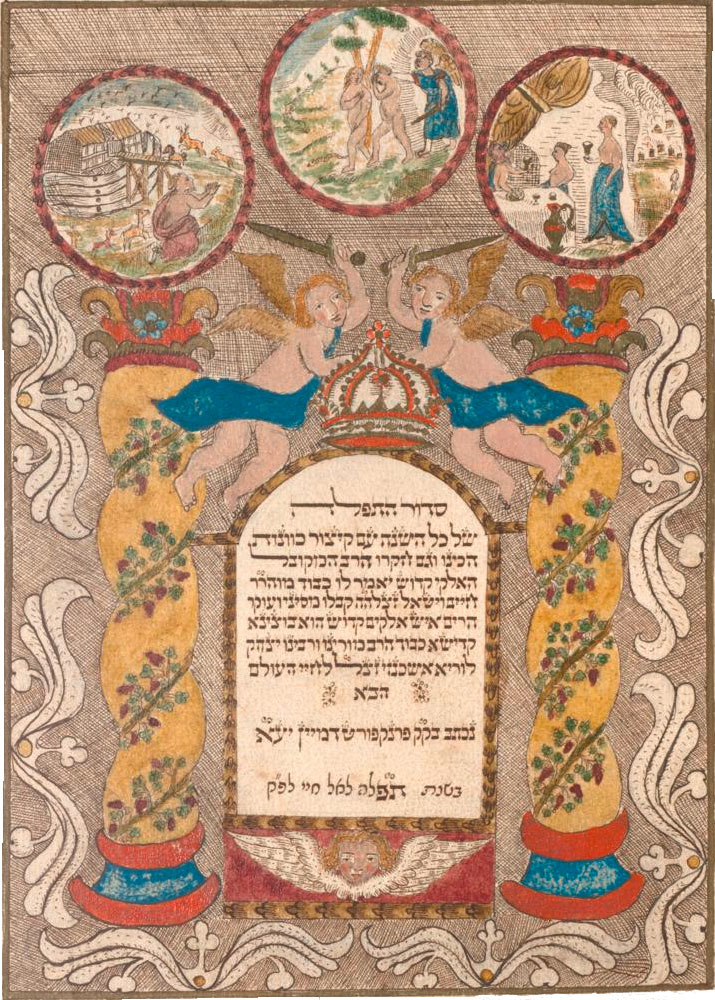 סדור התפלה
של כל השנה עם קיצור כוונות
הכינו וגם חקרו הרב המקובל
האלקי קדוש יאמר לו כבוד מוהר״ר
חיים ויטאל זצלהה קבלו מסיני ועוקר
הרים איש אלקים קדוש הוא בוצינא
קדישא כבוד הרב מורינו ורבינו יצחק
לוריא אשכנזי זצ״ל לחיי העולם
הבא
נכתב בק״ק פרנקפורט דמויין יע״א
בשנת תפלה לאל חיי לפ״ק